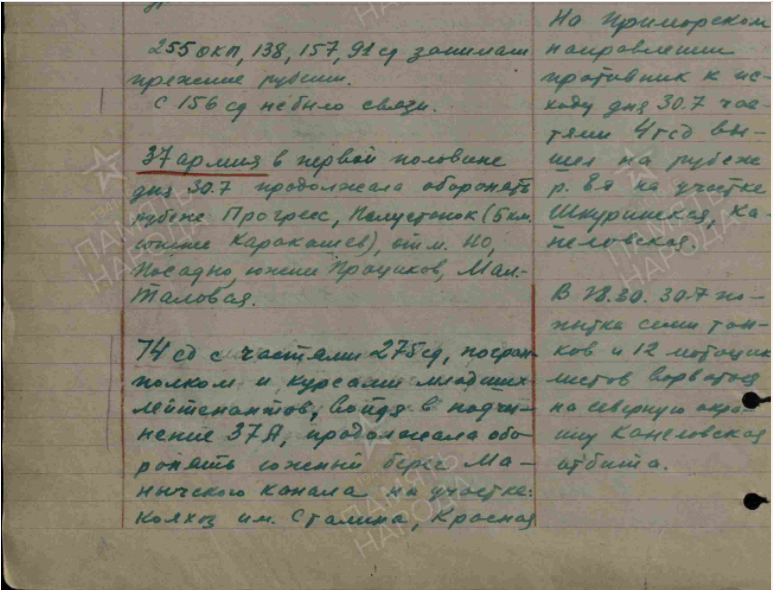 255 окп, 138, 157, 91 сд занимали
прежние рубежи.
С 156 сд не было связи.
37 армия в первой половине
дня 30.7 продолжала оборонять
рубеж Прогресс, Полустанок (5 км.
южнее Каракашев), отм. 40,
Посадно, южнее Процико́в, Мал.-
Таловая.
74 сд с частями 275 сд, погран-
полком и курсами младших
лейтенантов, войдя в подчи-
нение 37А, продолжала обо-
ронять южный берег Ма-
нычского канала на участке:
колхоз им. Сталина, Красная
На Приморском
направлении
противник к ис-
ходу дня 30.7 час-
тями 4 гсд вы-
шел на рубеж
р. Ея на участке
Шкуринская, Ка-
неловская.
В 18.30. 30.7 по-
пытка семи тан-
ков и 12 мотоцик-
листов ворваться
на северную окра-
ину Канеловская
отбита.
ПАМЯТЬ
НАРОДА
ПАМЯТЬ
НАРОДА
ПАМЯТЬ
НАРОДА